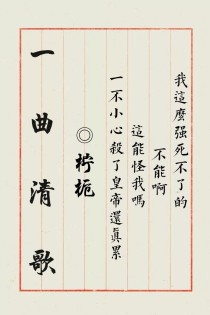 我這麼强死不了的
不能啊
這能怪我嗎
一不小心殺了皇帝還眞累
◎柠栀
一曲清歌